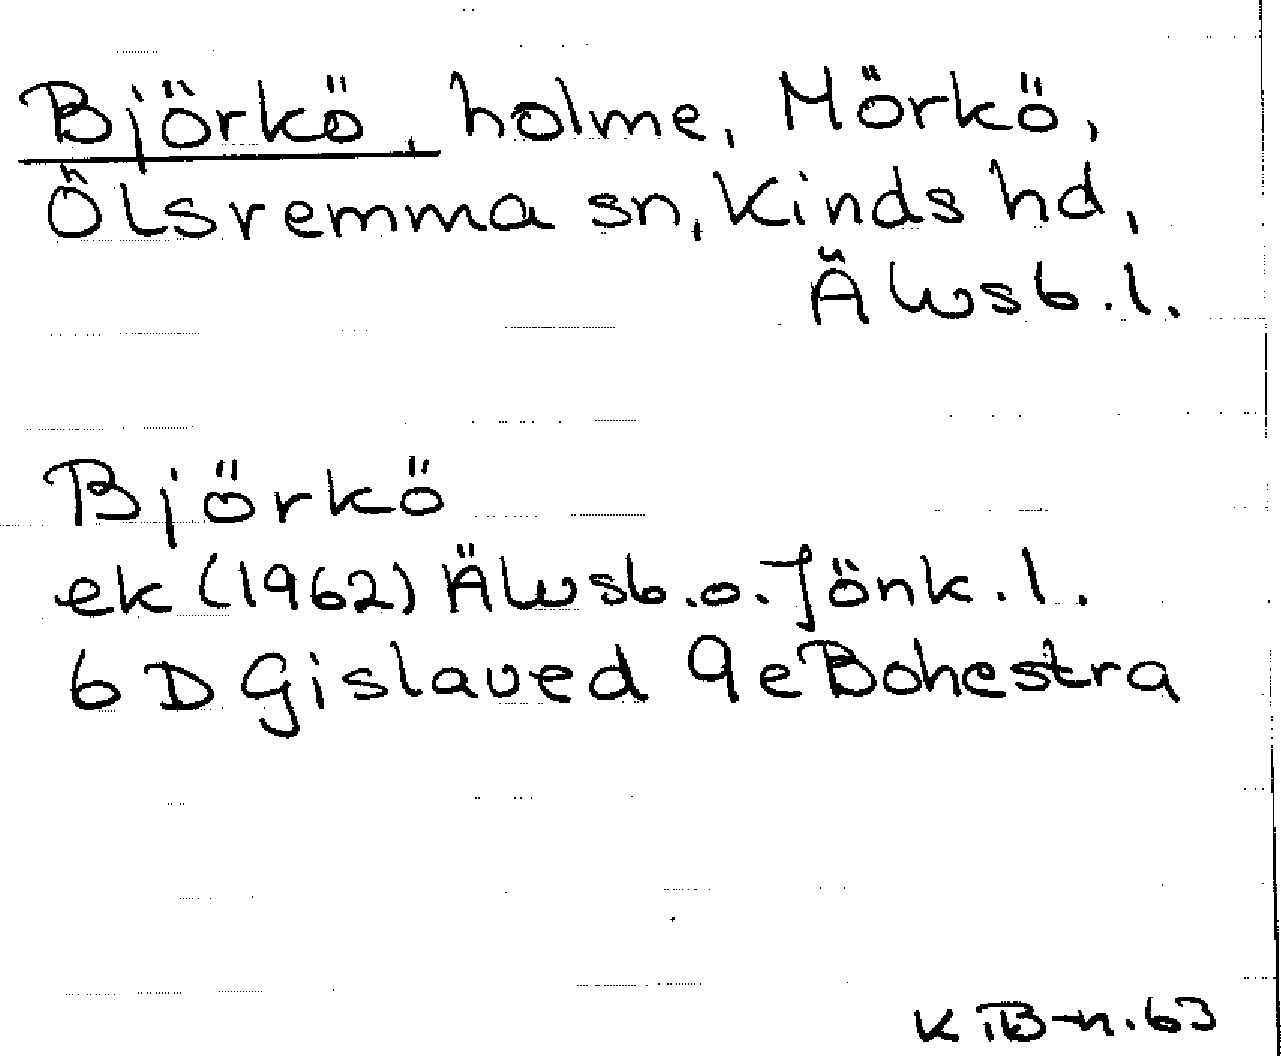 Björkö, holme, Mörkö,
Ölsremma sn, Kinds hd,
Älvsb. l.
Björkö
ek (1962) Älvsb. o. Jönk. l.
6 D Gislaved 9e Bohestra
K iB-n. 63